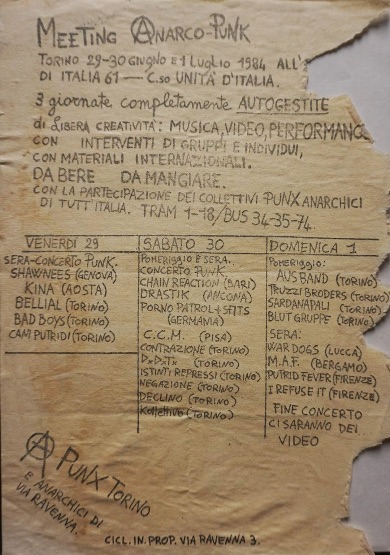 MEETING ANARCO-PUNK
TORINO 29-30 GIUGNO E 1 LUGLIO 1984 ALL'
DI ITALIA 61 — C.SO UNITÀ D'ITALIA.
3 giornate completamente AUTOGESTITE
di LIBERA CREATIVITÀ: MUSICA, VIDEO, PERFORMANC
CON INTERVENTI DI GRUPPI E INDIVIDUI,
CON MATERIALI INTERNAZIONALI.
DA BERE DA MANGIARE.
CON LA PARTECIPAZIONE DEI COLLETTIVI PUNX ANARCHICI
DI TUTT'ITALIA. TRAM 1-18/BUS 34-35-74.
VENERDÌ 29
SERA-CONCERTO PUNK.
SHAWNEES (GENOVA)
KINA (AOSTA)
BELLIAL (TORINO)
BAD BOYS (TORINO)
CANI PUTRIDI (TORINO)
SABATO 30
POMERIGGIO E SERA.
CONCERTO PUNK
CHAIN REACTION (BARI)
DRASTIK (ANCONA)
PORNO PATROL + SFITS
(GERMANIA)
C.C.M. (PISA)
CONTRAZIONE (TORINO)
(TORINO)
ISTINTI REPRESSI (TORINO)
NEGAZIONE (TORINO)
DECLINO (TORINO)
Kollettivo (TORINO)
DOMENICA 1
POMERIGGIO:
AUS BAND (TORINO)
TRUZZI BRODERS (TORINO)
SARDANAPALI (TORINO)
BLUT GRUPPE (TORINO)
SERA:
WAR DOGS (LUCCA)
M.A.F. (BERGAMO)
PUTRID FEVER (FIRENZE)
I REFUSE IT (FIRENZE)
FINE CONCERTO
CI SARANNO DEI
VIDEO
A PUNX TORINO
E ANARCHICI DI
VIA RAVENNA.
CICL. IN. PROP. VIA RAVENNA 3.